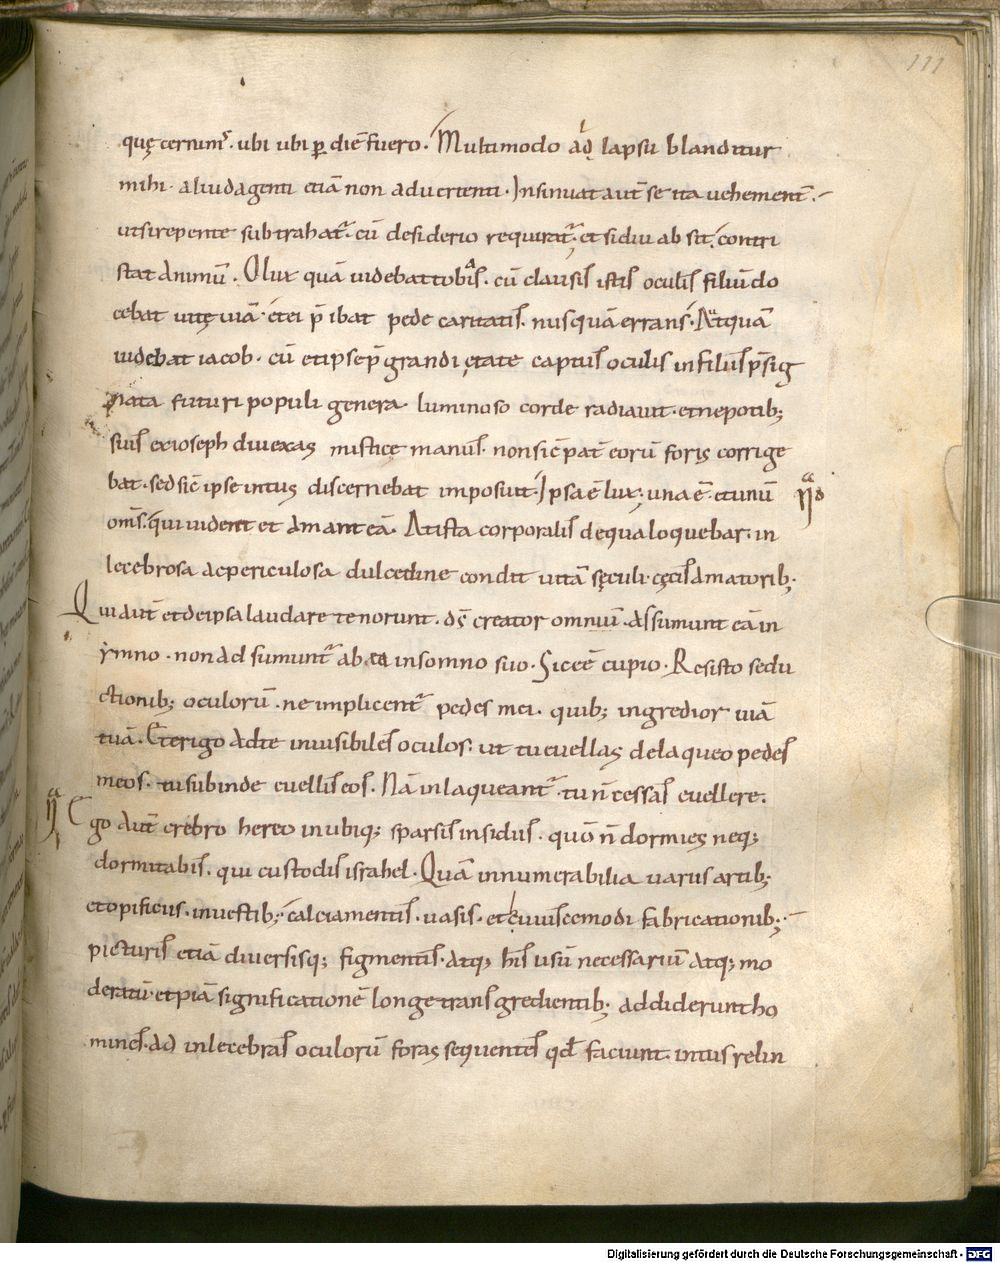 111
quę cernimꝰ. ubi ubi ꝑ diē fuero. Multimodo adlapsu blanditur
mihi. aliud agenti etiā non aduertenti. Insinuat aut̄ se ita uehement̄.
ut si repente subtrahat᷑. cū desiderio requirat᷑. et si diu absit. contri
stat animū. O lux quā uidebat tobias. cū clausis istis oculis filiū do
cebat uitę uiā. et ei p̄ibat pede caritatis. nusquā errans. Aut quā
uidebat iacob. cū et ipse p̄grandi ętate captus oculis in filiis p̄sig
nata futuri populi genera luminoso corde radiauit. et nepotib;
suis ex ioseph diuexas misticę manus. non sic̄ pat̄ eorū foris corrige
bat. sed sic̄ ipse intus discernebat imposuit. Ipsa ē lux. una ē. et unū
om̄s. qui uident et amant eā. At ista corporalis de qua loquebar. in
lecebrosa ac periculosa dulcedine condit uitā sęculi. cęcis amatorib;
Qui aut̄ et de ipsa laudare te norunt. ds̄ creator omniū. assumunt eā in
ymno. non adsumunt᷑ ab ea in somno suo. Sic eē cupio. Resisto sedu
ctionib; oculorū. ne implicent᷑ pedes mei. quib; ingredior uiā
tuā. Et erigo ad te inuisibiles oculos. ut tu euellas de laqueo pedes
meos. tu subinde euellis eos. Nā inlaqueant᷑. tu n̄ cessas euellere.
Ego aut̄ crebro hereo in ubiq; sparsis insidiis. quō n̄ dormies neq;
dormitabis. qui custodis israhel. Quā innumerabilia uariis artib;
et opificiis. in uestib; calciamentis. uasis. et cuiuiscemodi fabricationib;
picturis etiā diuersisq; figmentis. atq; his usū necessariū atq; mo
deratū. et piā significationē longe transgredientib; addiderunt ho
mines. ad inlecebras oculorū foras sequentes qd̄ faciunt. intus relin
Digitalisierung gefördert durch die Deutsche Forschungsgemeinschaft - DFG